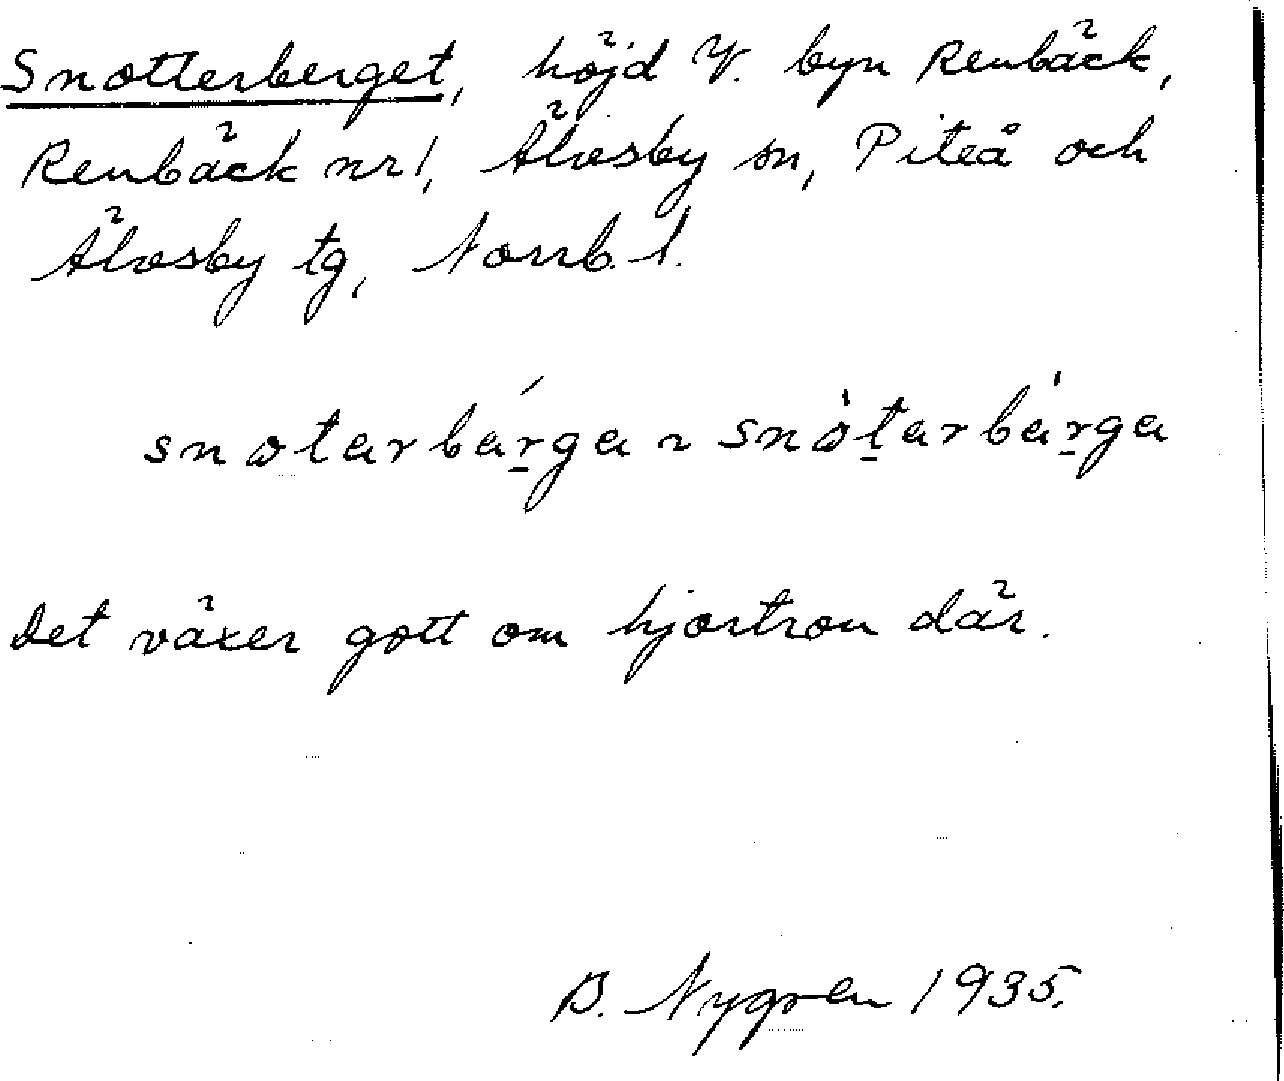 Snotterberget, höjd V. byn Renbäck,
Renbäck nr 1, Älvsby sn, Piteå och
Älvsby tg, Norrb. l.
snotarbárga ~ snòtarbárga
Det växer gott om hjortron där.
B. Nygren 1935.